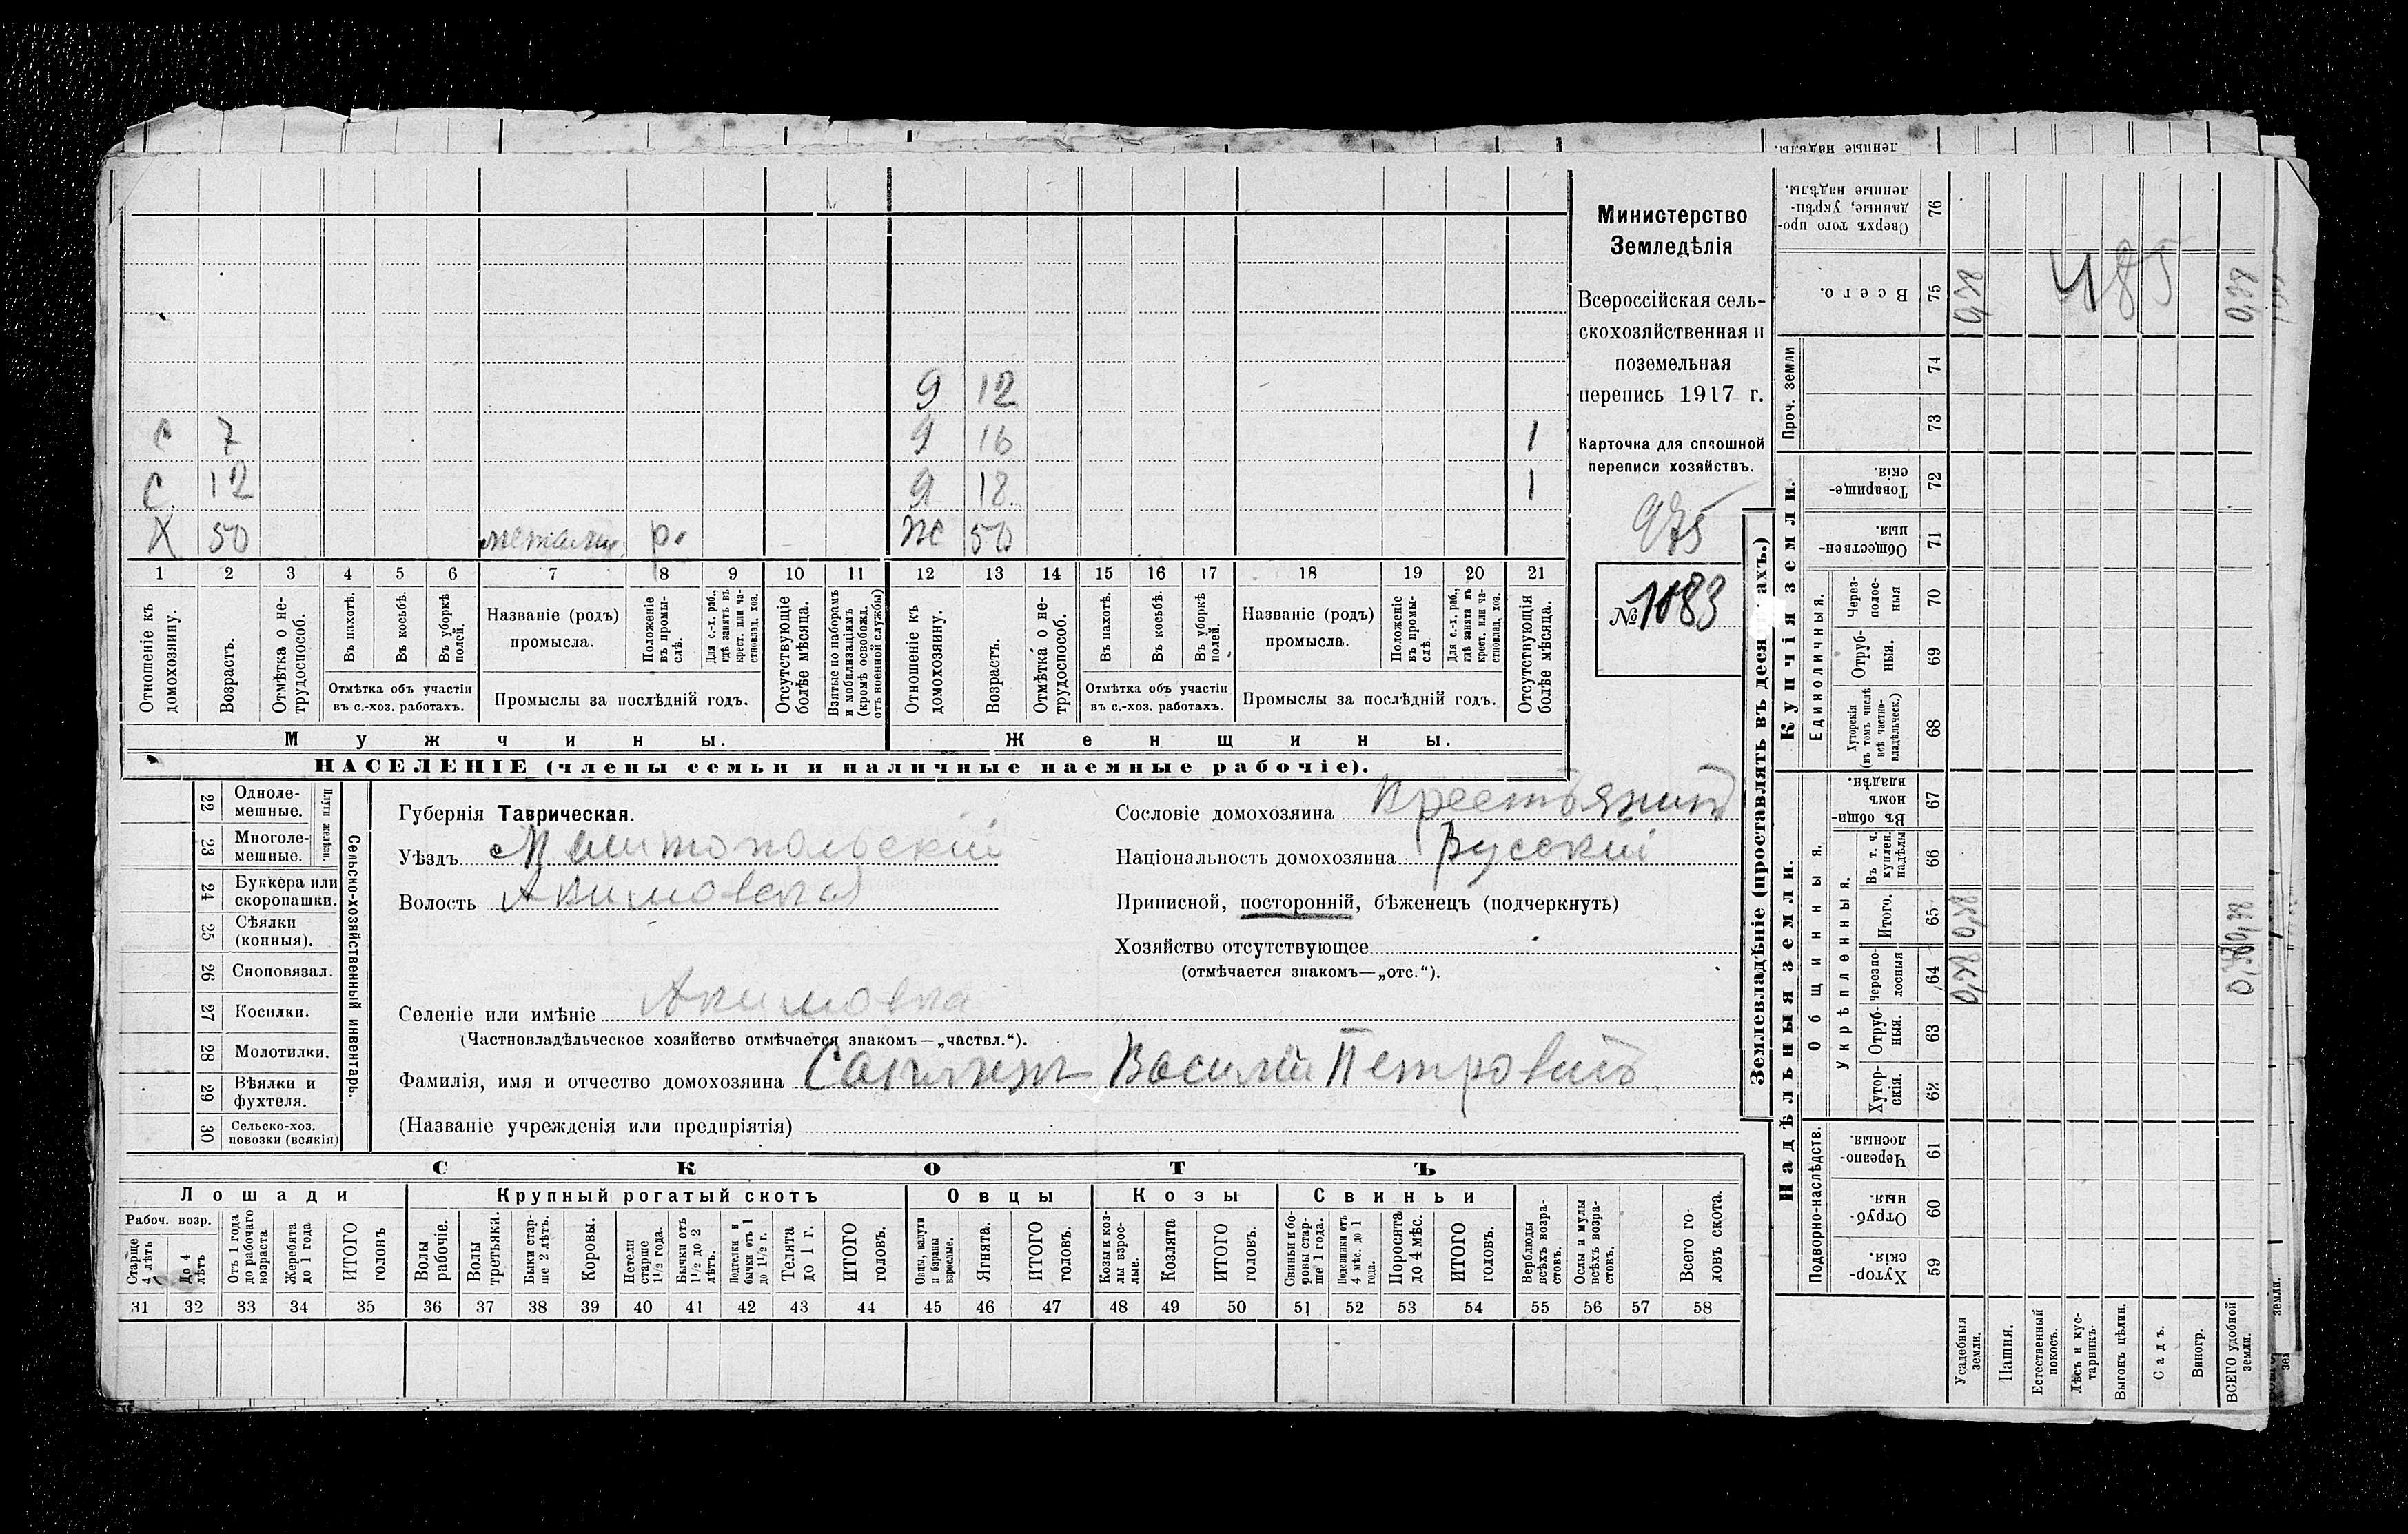 Министерство
Земледѣлія
Всероссійская сель-
скохозяйственная и
поземельная
перепись 1917 г.
Карточка для сплошной
переписи хозяйствъ.
975
№ 1083
9 12
С 7 9 16 1
С 12 9 18 1
Х 50 р. Ж 50
1 2 3 4 5 6 7 8 9 10 11 12 13 14 15 16 17 18 19 20 21
Отношеніе къ домохозяину.
Возрастъ.
Отмѣтка о не-трудоспособ.
Въ пахотѣ.
Въ косьбѣ.
Въ уборкѣ полей.
Отмѣтка объ участіи въ с.-хоз. работахъ.
Названіе (родъ) промысла.
Положеніе въ промы-слѣ.
Для с.-х. раб., гдѣ занятъ въ крест. или ча-стновлад. хоз.
Промыслы за послѣдній годъ.
Отсутствующіе болѣе мѣсяца.
Взятые по наборамъ и мобилизаціямъ (кромѣ освобожд. отъ военной службы)
Отношеніе къ домохозяину.
Возрастъ.
Отмѣтка о не-трудоспособ.
Въ пахотѣ.
Въ косьбѣ.
Въ уборкѣ полей.
Отмѣтка объ участіи въ с.-хоз. работахъ.
Названіе (родъ) промысла.
Положеніе въ промы-слѣ.
Для с.-х. раб., гдѣ занята въ крест. или ча-стновлад. хоз.
Промыслы за послѣдній годъ.
Отсутствующія болѣе мѣсяца.
Мужчины. Женщины.
НАСЕЛЕНІЕ (члены семьи и наличные наемные рабочіе).
Сельско-хозяйственный инвентарь.
Плуги желѣзн.
22 Одноле-мешные.
23 Многоле-мешные.
24 Буккера или скоропашки.
25 Сѣялки (конныя).
26 Сноповязал.
27 Косилки.
28 Молотилки.
29 Вѣялки и фухтеля.
30 Сельско-хоз. повозки (всякія)
Губернія Таврическая.
Уѣздъ Мелитопольскій
Волость Акимовская
Селеніе или имѣніе Акимовка
(Частновладѣльческое хозяйство отмѣчается знакомъ—„частвл.“).
Фамилія, имя и отчество домохозяина Василій Петровичъ
(Названіе учрежденія или предпріятія)
Сословіе домохозяина Крестьянинъ
Національность домохозяина Русскій
Приписной, посторонній, бѣженецъ (подчеркнуть)
Хозяйство отсутствующее
(отмѣчается знакомъ—„отс.“).
СКОТЪ
Лошади Крупный рогатый скотъ Овцы Козы Свиньи
Рабоч. возр.
Старше 4 лѣтъ
До 4 лѣтъ
Отъ 1 года до рабочаго возраста
Жеребята до 1 года
ИТОГО головъ
Волы рабочіе.
Волы третьяки.
Быки стар-ше 2 лѣтъ.
Коровы.
Нетели старше 1½ года.
Бычки отъ 1½ до 2 лѣтъ.
Подтелки и бычки отъ 1 до 1½ г.
Телята до 1 г.
ИТОГО головъ.
Овцы, валухи и бараны взрослые.
Ягнята.
ИТОГО головъ.
Козы и коз-лы взрос-лые.
Козлята
ИТОГО головъ.
Свиньи и бо-ровы стар-ше 1 года.
Подсвинки отъ 4 мѣс. до 1 года.
Поросята до 4 мѣс.
ИТОГО головъ.
Верблюды всѣхъ возра-стовъ.
Ослы и мулы всѣхъ возра-стовъ.
Всего го-ловъ скота.
31 32 33 34 35 36 37 38 39 40 41 42 43 44 45 46 47 48 49 50 51 52 53 54 55 56 57 58
Землевладѣніе (проставлять въ деся ахъ.)
Надѣльныя земли. Купчія земли.
Проч. земли
Подворно-наслѣдств.
Общинныя.
Укрѣпленныя.
Единоличныя.
59 Хутор-скія.
60 Отруб-ныя.
61 Черезпо-лосныя
62 Хутор-скія.
63 Отруб-ныя.
64 Черезпо-лосныя
65 Итого.
66 Въ т. ч. куплен. надѣлы
67 Въ общин-номъ владѣн.
68 Хуторскія (въ томъ числѣ всѣ частно-владѣльческ.)
69 Отруб-ныя.
70 Через-полос-ныя
71 Обществен-ныя.
72 Товарище-скія.
73
74
75 Всего.
76 Сверхъ того про-данные, укрѣп-ленные надѣлы.
Усадебныя земли. 0,38 0,38 0,38
Пашня.
Естественный покосъ.
Лѣсъ и кус-тарникъ.
Выгонъ цѣлин.
Садъ.
Виногр.
ВСЕГО удобной земли. 0,38 0,38 0,38
485
ленные надѣлы.
земли.